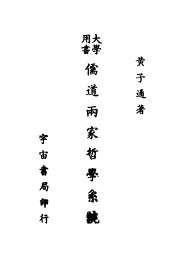 黄子通著
大學用書
儒道兩家哲學系統
宇宙書局印行